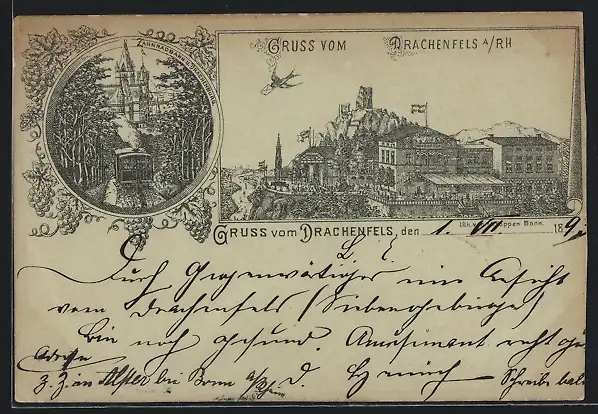 ZAHNRADBAHN
GRUSS VOM DRACHENFELS A/RH
Lith. Bonn.
GRUSS VOM DRACHENFELS, den 1. VII. 189
L. E
Durch Gegenwärtiges eine Ansicht
vom Drachenfels (Siebengebirge)
Bin noch gesund. Amüsiment recht
Adresse
z. Z. in bei Bonn a/Rhein d. Heinrich Schreibe bal